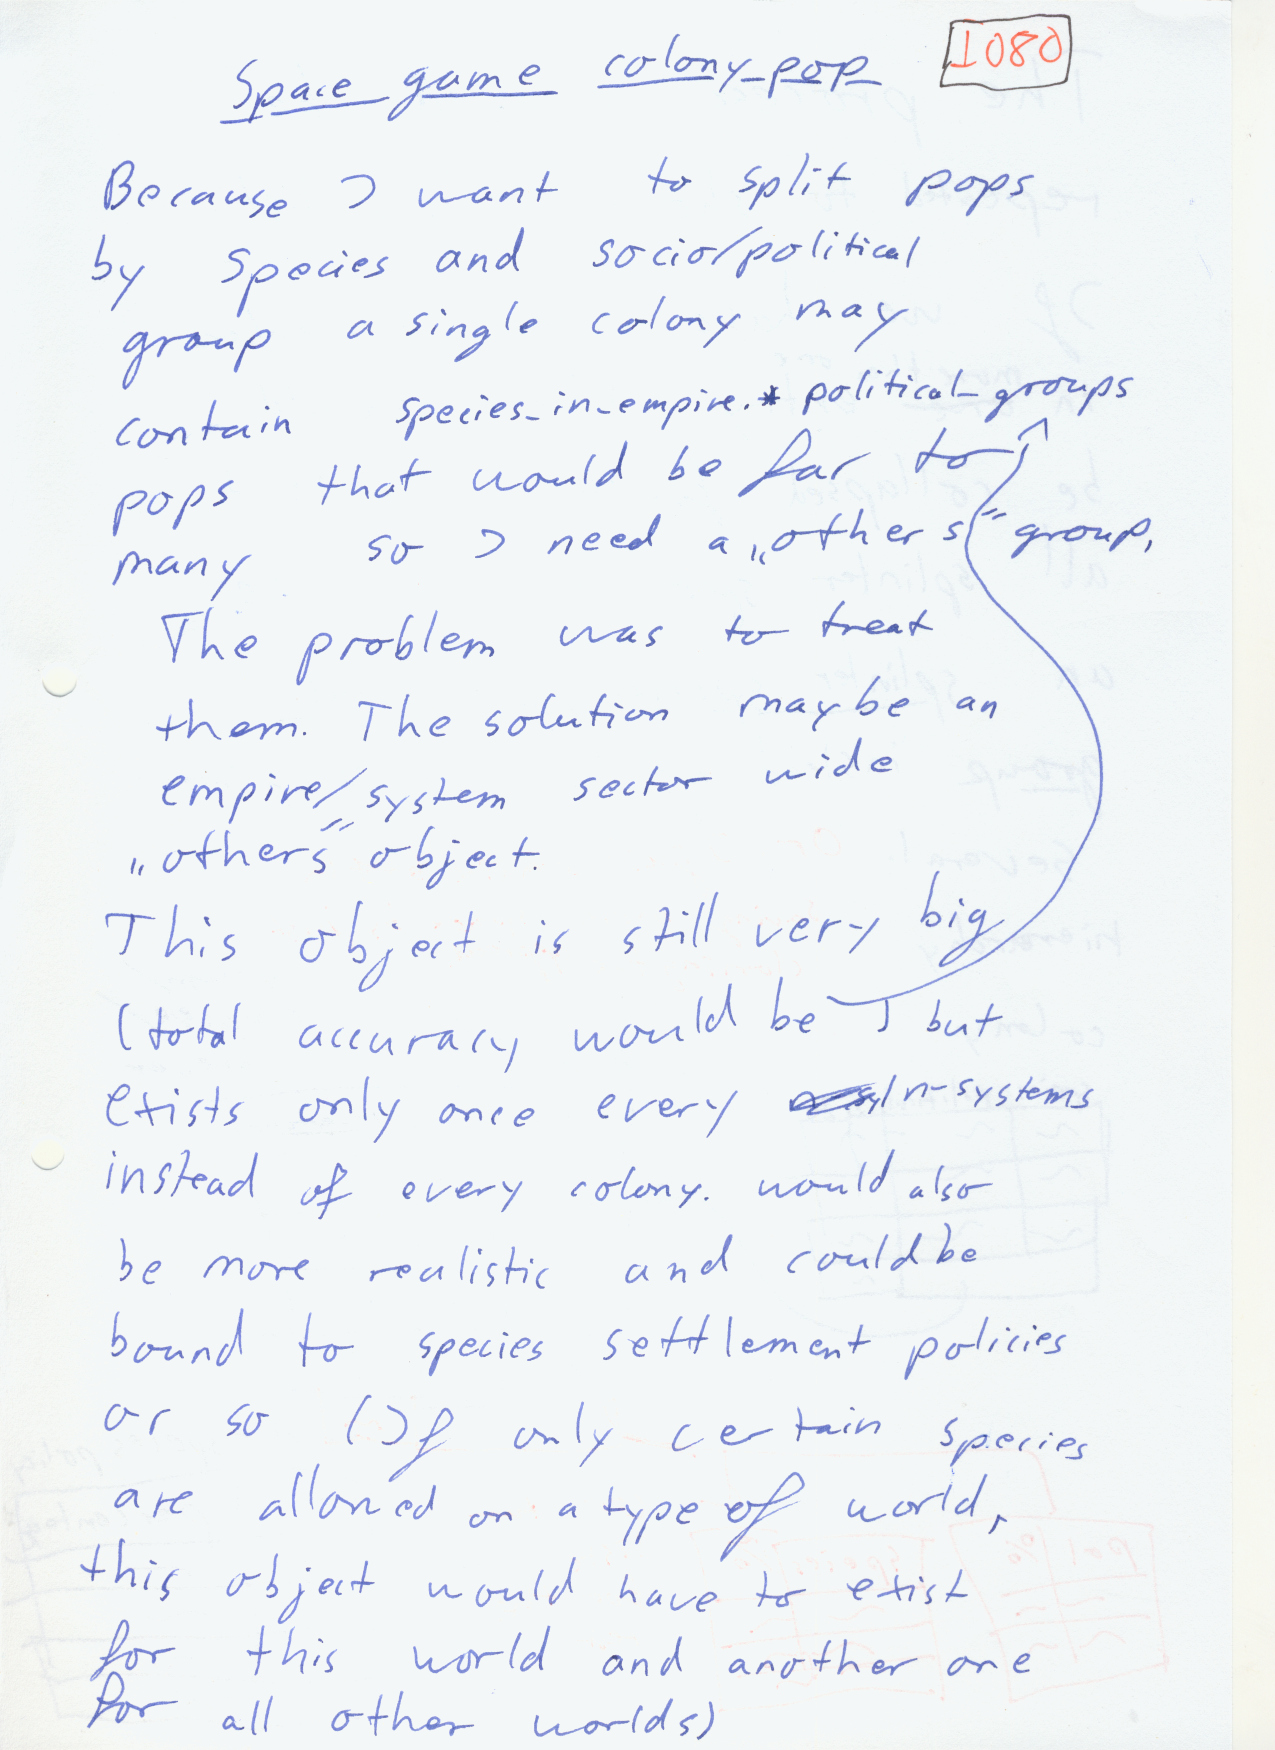 Space game colony-pop
1080
Because I want to split pops
by species and socio/political
group a single colony may
contain species-in-empire * political-groups
pops that would be far to
many so I need a „others“ group,
The problem was to treat
them. The solution maybe an
empire/system sector wide
„others“ object.
This object is still very big
(total accuracy would be ) but
exists only once every n-systems
instead of every colony. would also
be more realistic and could be
bound to species settlement policies
or so (If only certain species
are allowed on a type of world,
this object would have to exist
for this world and another one
for all other worlds)